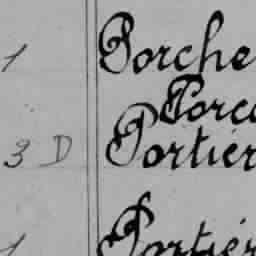 1 Porche
Porc
3 D Portier
1 Portiér